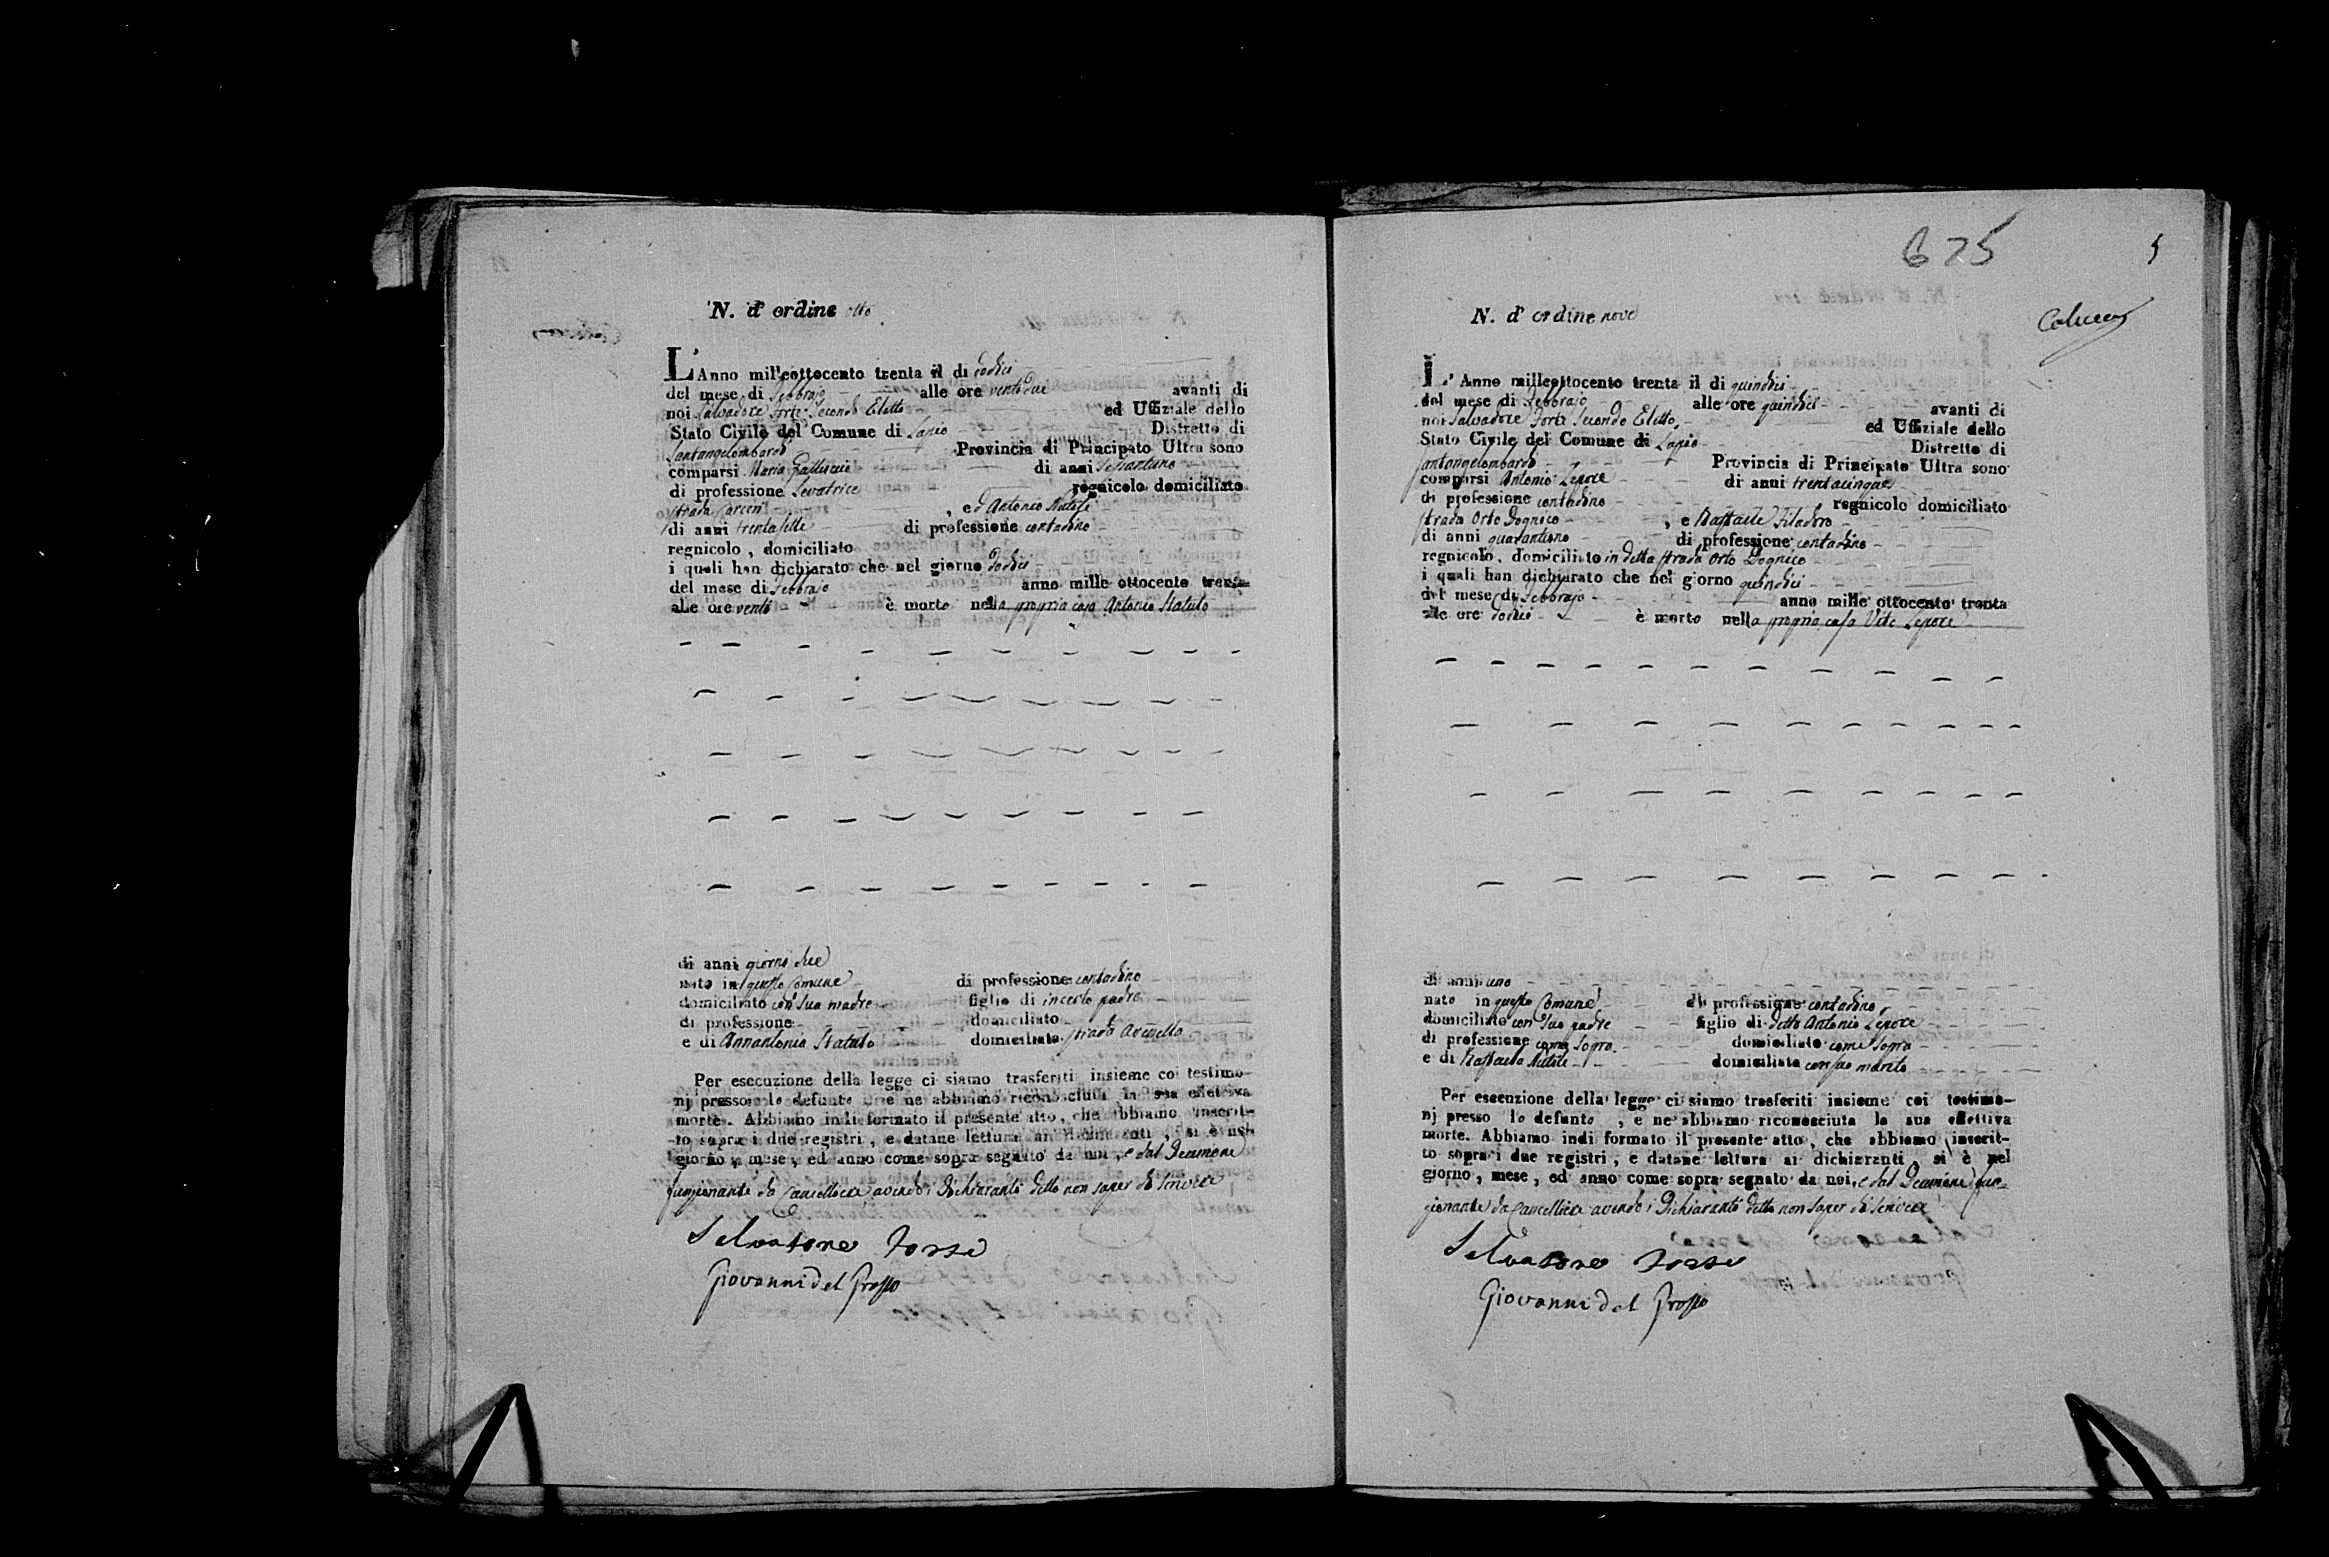 N. d' ordine otto
L'Anno mill'eottocento trenta il di dodici
del mese di Febbrajo alle ore ventidue avanti di
noi Salvadore Forte Secondo Eletto ed Uffiziale dello
Stato Civile del Comune di Lapio Distretto di
Santangelombardo Provincia di Principato Ultra sono
comparsi Maria Galluccio di anni sessantuno
di professione Levatrice regnicolo domiciliato
strada Carceri , ed Antonio Statuto
di anni trentasette di professione contadino
regnicolo , domiciliato
i quali han dichiarato che nel giorno dodici
del mese di Febbrajo anno mille ottocento trenta
alle ore venti è morto nella propria casa Antonio Statuto
di anni giorni due
nato in questo Comune di professione contadino
domiciliato con sua madre figlio di incerto padre
di professione domiciliato
e di Annantonia Statuto domiciliata strada
Per esecuzione della legge ci siamo trasferiti insieme coi testimo-
nj presso lo defunto e ne abbiamo riconosciuta la sua effettiva
morte. Abbiamo indi formato il presente atto, che abbiamo inscrit-
to sopra i due registri , e datane lettura ai dichiaranti , si è nel
giorno , mese , ed anno come sopra segnato da noi , e dal Decurione
funzionante da Cancelliere avendo i Dichiaranti detto non saper di scrivere
Salvatore Forte
Giovanni del Grosso
675
5
N. d' ordine nove
L' Anno milleottocento trenta il di quindici
del mese di Febbrajo alle ore quindici avanti di
noi Salvadore Forte Secondo Eletto, ed Uffiziale dello
Stato Civile del Comune di Lapio Distretto di
Santangelombardo Provincia di Principato Ultra sono
comparsi Antonio Lepore di anni trentacinque
di professione contadino regnicolo domiciliato
strada Orto Dognico , e Raffaele Filadoro
di anni quarantuno di professione contadino
regnicolo, domiciliato in detta strada Orto Dognico
i quali han dichiarato che nel giorno quindici
del mese di Febbrajo anno mille ottocento trenta
alle ore dodici è morto nella propria casa Vito Lepore
di anni uno
nato in questo Comune di professione contadino,
domiciliato con suo padre figlio di detto Antonio Lepore
di professione come sopra domiciliato come sopra
e di Raffaela domiciliata con suo marito
Per esecuzione della legge ci siamo trasferiti insieme coi testimo-
nj presso lo defunto , e ne abbiamo riconosciuta la sua effettiva
morte. Abbiamo indi formato il presente atto, che abbiamo inscrit-
to sopra i due registri , e datane lettura ai dichiaranti , si è nel
giorno , mese , ed anno come sopra segnato da noi, e dal Decurione fun-
zionante da Cancelliere avendo i Dichiaranti detto non saper di scrivere
Salvatore Forte
Giovanni del Grosso